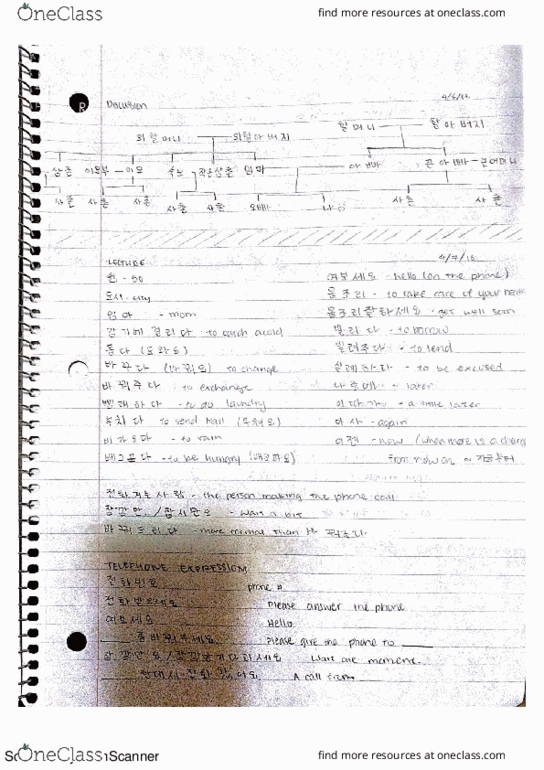 OneClass
find more resources at oneclass.com
R
외할머니 외할아버지
할머니 할아버지
삼촌 이모부 이모 작은삼촌 엄마 아빠 큰아빠 큰어머니
사촌 사촌 사촌 사촌 사촌 오빠 나 사촌 사촌
LECTURE
여보세요 - hello (on the phone)
도시 - city
몸조리 - to take care of your
엄마 - mom
몸조리 잘하세요 - get well soon
감기에 걸리다 - to catch a cold
빌리다 - to borrow
빌려주다 - to lend
바꾸다 (바꿔요) to change
실례하다 - to be excused
바꿔주다 - to exchange
나중에 - later
빨래하다 - to do laundry
이따가 - a little later
부치다 to send mail
- again
- to rain
이젠 - now (when there is a
배고프다 - to be hungry
from now on 지금부터
전화 거는 사람 - the person making the phone call
잠깐만 / 잠시만요 - wait a bit
바꿔드리다 - more formal than
TELEPHONE EXPRESSION
phone #
전화 받으세요 Please answer the phone
여보세요 Hello
좀 바꿔주세요 Please give the phone to ____
잠깐만요 / 잠깐만 기다리세요 Wait one moment.
A call from
Scanner
OneClass
find more resources at oneclass.com